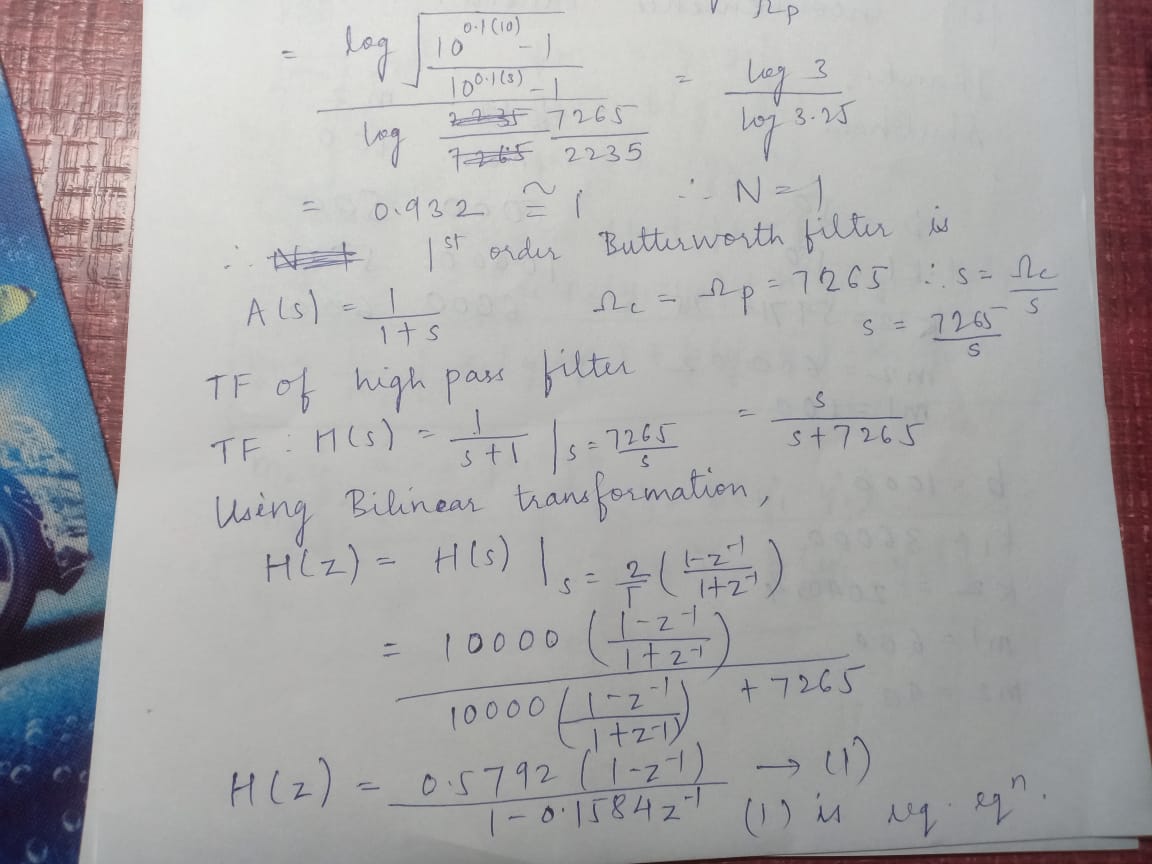 Ωp
= log √(10^0.1(10) - 1 / 10^0.1(3) - 1) / log 7265/2235 = log 3 / log 3.25
= 0.932 ≅ 1 ∴ N = 1
∴ 1st order Butterworth filter is
A(s) = 1/(1+s) Ωc = Ωp = 7265 ∴ s = Ωc/s
s = 7265/s
TF of high pass filter
TF : H(s) = 1/(s+1) | s = 7265/s = s/(s+7265)
Using Bilinear transformation,
H(z) = H(s) | s = 2/T ((1-z^-1)/(1+z^-1))
= 10000 ((1-z^-1)/(1+z^-1)) / 10000 ((1-z^-1)/(1+z^-1)) + 7265
H(z) = 0.5792 (1-z^-1) / 1-0.1584z^-1 → (1)
(1) is req. eqn.